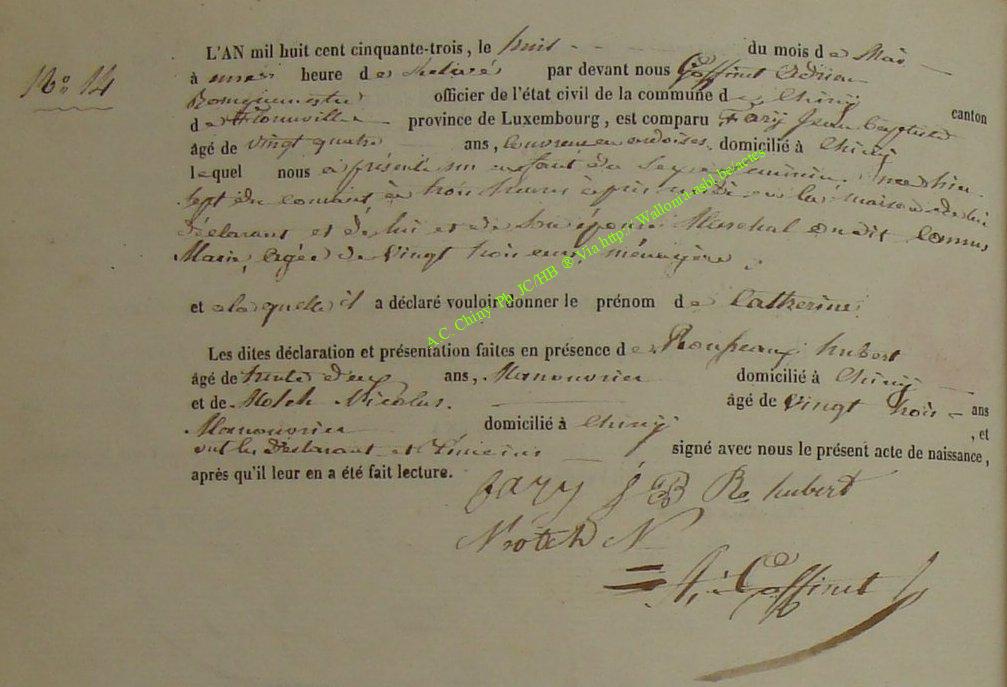 No 14
L'AN mil huit cent cinquante-trois, le huit du mois de Mai
à onze heure de relevé par devant nous Goffinet Adrien
Bourguemestre officier de l'état civil de la commune de Chiny canton
de Florenville province de Luxembourg, est comparu Fary Jean Baptiste
âgé de vingt quatre ans, couvreur en ardoises, domicilié à Chiny
lequel nous a présenté un enfant du sexe féminin, né hier
sept du courant à trois heures après midi en la maison de lui
déclarant et de lui et de son épouse Maréchal on dit Camus
Marie, agée de Vingt trois ans, ménagère
et à laquelle il a déclaré vouloir donner le prénom de Catherine
Les dites déclaration et présentation faites en présence de Hubert
âgé de trente deux ans, Manouvrier domicilié à Chiny
et de Nicolas. âgé de Vingt trois ans
Manouvrier domicilié à Chiny , et
ont les déclarant et témoins signé avec nous le présent acte de naissance,
après qu'il leur en a été fait lecture.
Fary J B Ro hubert
N
A, Goffinet
A.C. Chiny Ph. JC/HB ® Via http://Wallonia-asbl.be/actes